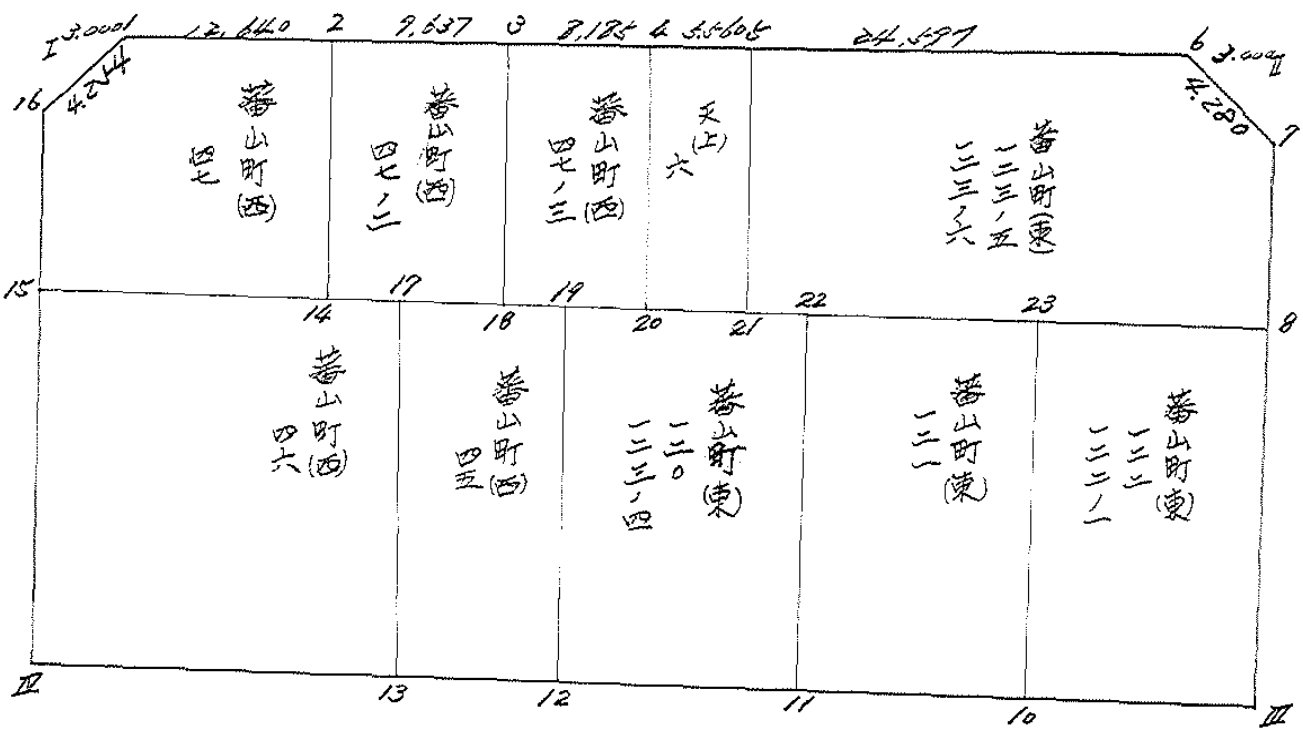 I 3.000 1 12,640 2 9,637 3 8,185 4 5.560 5 24,597 6 3.000 II
16 4.254
4.280 7
蕃山町(西)
四七
蕃山町(西)
四七ノ二
蕃山町(西)
四七ノ三
天(上)
六
蕃山町(東)
一二三ノ五
一二三ノ六
15 14 17 18 19 20 21 22 23 8
蕃山町(西)
四六
蕃山町(西)
四五
蕃山町(東)
一二〇
一二三ノ四
蕃山町(東)
一二一
蕃山町(東)
一二二
一二二ノ一
IV 13 12 11 10 III